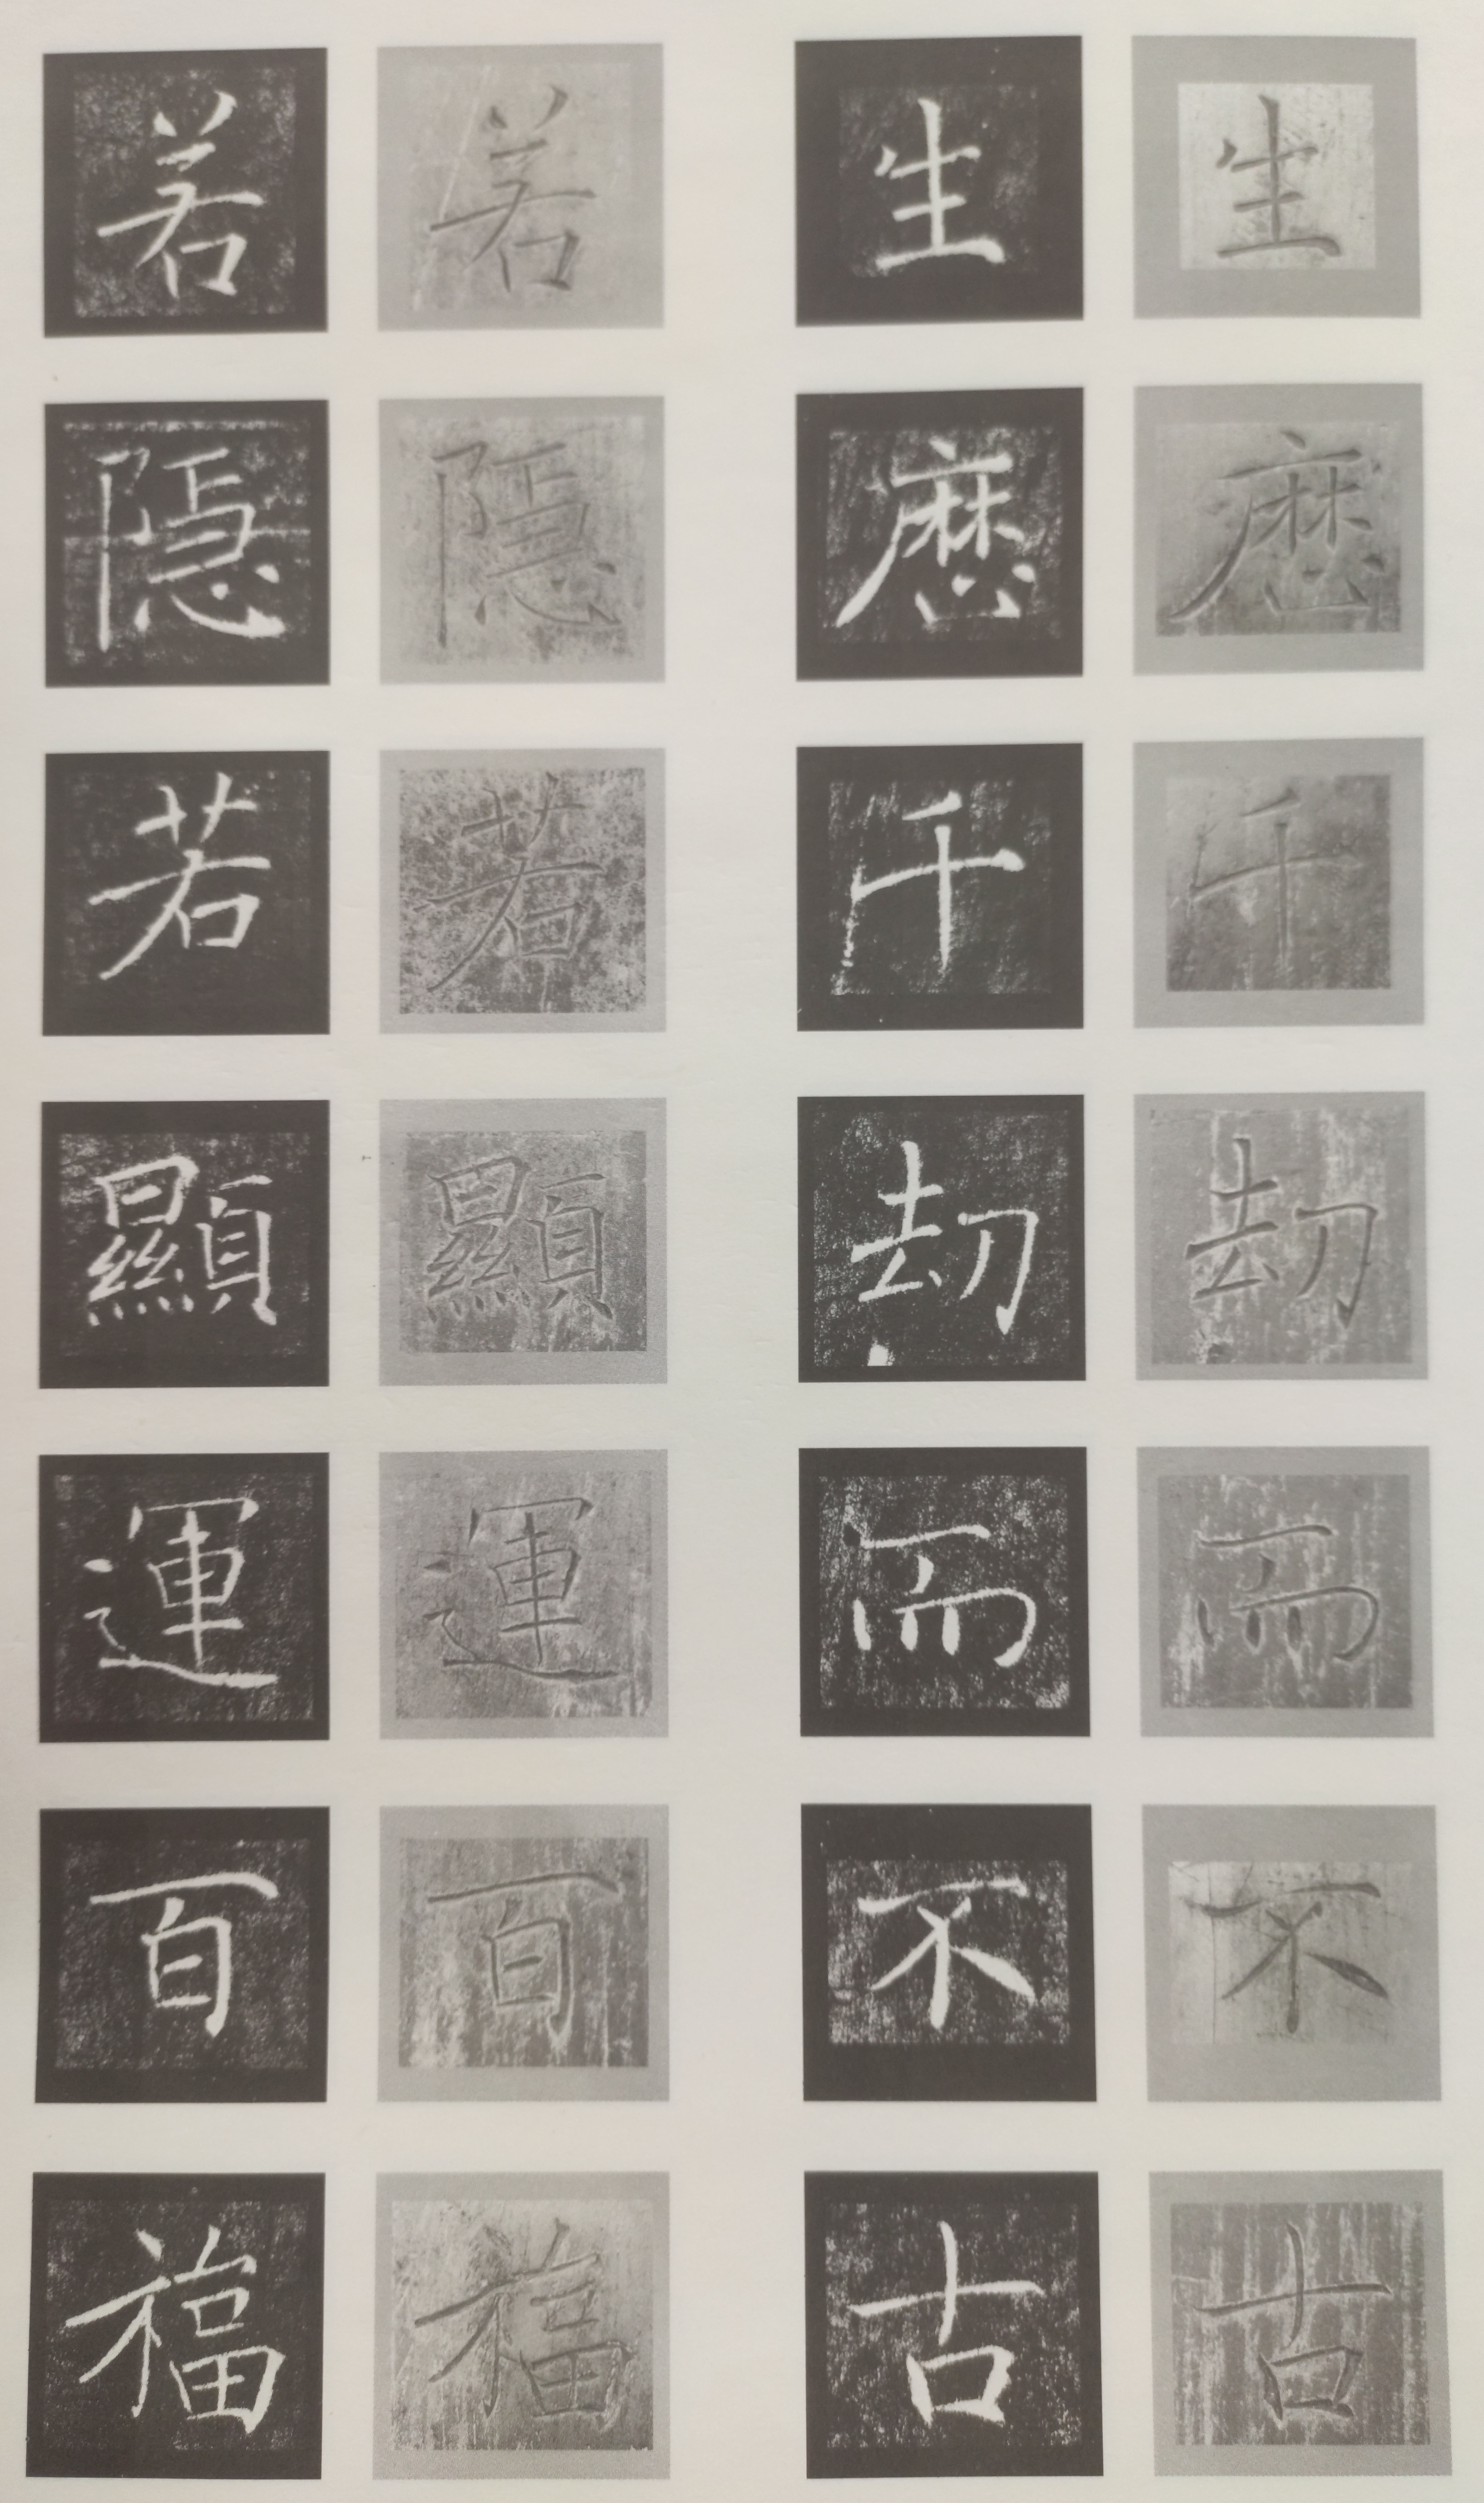 生歷千刧而不古
生歷千刧而不古
若隱若顯運百福
若隱若顯運百福